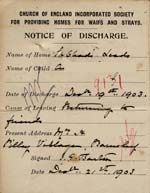 CHURCH OF ENGLAND INCORPORATED SOCIETY
FOR PROVIDING HOMES FOR WAIFS AND STRAYS.
NOTICE OF DISCHARGE.
Name of Home St Chad's Leeds
Name of Child
Date of Discharge Dec 19 1903.
Cause of Leaving Returning to
friends
Present Address
Pilley Village, Barnsley
Signed
Date Dec 21st 1903